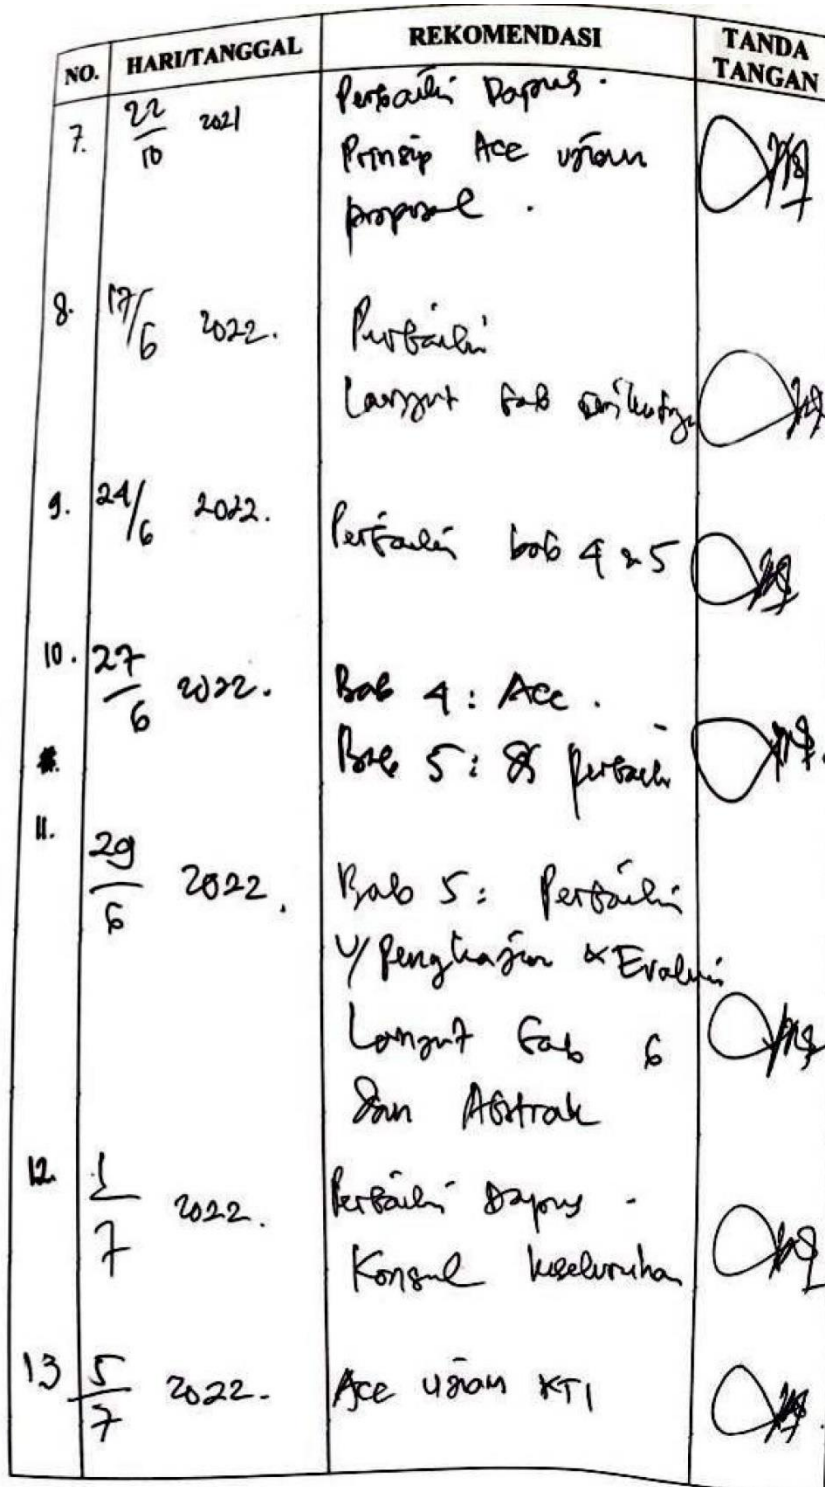 NO. HARI/TANGGAL REKOMENDASI TANDA TANGAN
7. 22/10 2021 Perbaiki Dapus.
Prinsip Acc ujian
proposal.
8. 17/6 2022. Perbaiki
Lanjut bab berikutnya
9. 24/6 2022. Perbaiki bab 4 & 5
10. 27/6 2022. Bab 4: Acc.
Bab 5: perbaiki
11. 29/6 2022. Bab 5: Perbaiki
u/ Pengkajian & Evaluasi
Lanjut bab 6
dan Abstrak
12. 1/7 2022. Perbaiki Dapus -
Konsul keseluruhan
13 5/7 2022. Acc ujian KTI